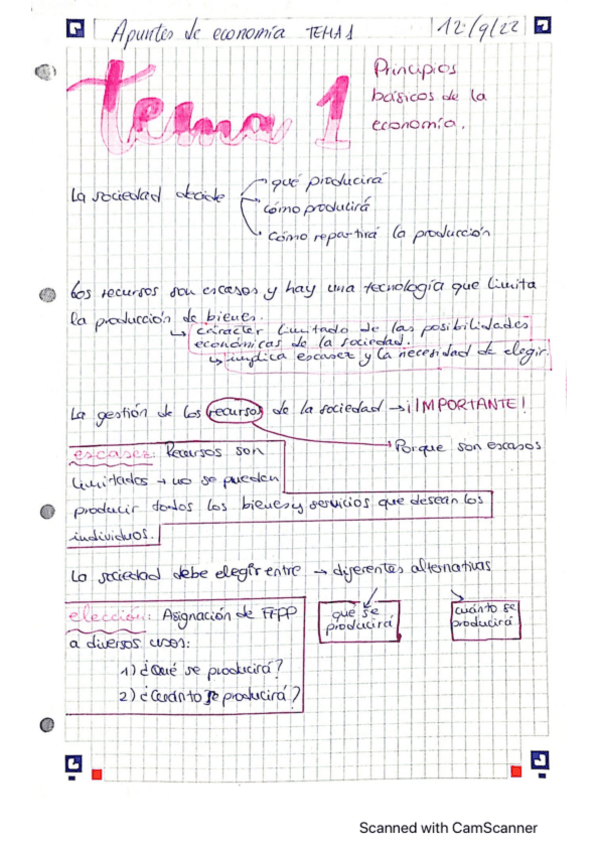 Apuntes de economía TEMA 1
12/9/22
tema 1
Principios
básicos de la
economía.
La sociedad decide
qué producirá
cómo producirá
cómo repartirá la producción
Los recursos son escasos y hay una tecnología que limita
la producción de bienes.
↳ carácter limitado de las posibilidades
económicas de la sociedad.
↳ implica escasez y la necesidad de elegir.
La gestión de los recursos de la sociedad → ¡IMPORTANTE!
Porque son escasos
escasez: Recursos son
limitados → no se pueden
producir todos los bienes y servicios que desean los
individuos.
La sociedad debe elegir entre → diferentes alternativas
elección: Asignación de FFPP
a diversos usos:
1) ¿Qué se producirá?
2) ¿Cuánto se producirá?
que se
producirá
cuánto se
producirá
Scanned with CamScanner